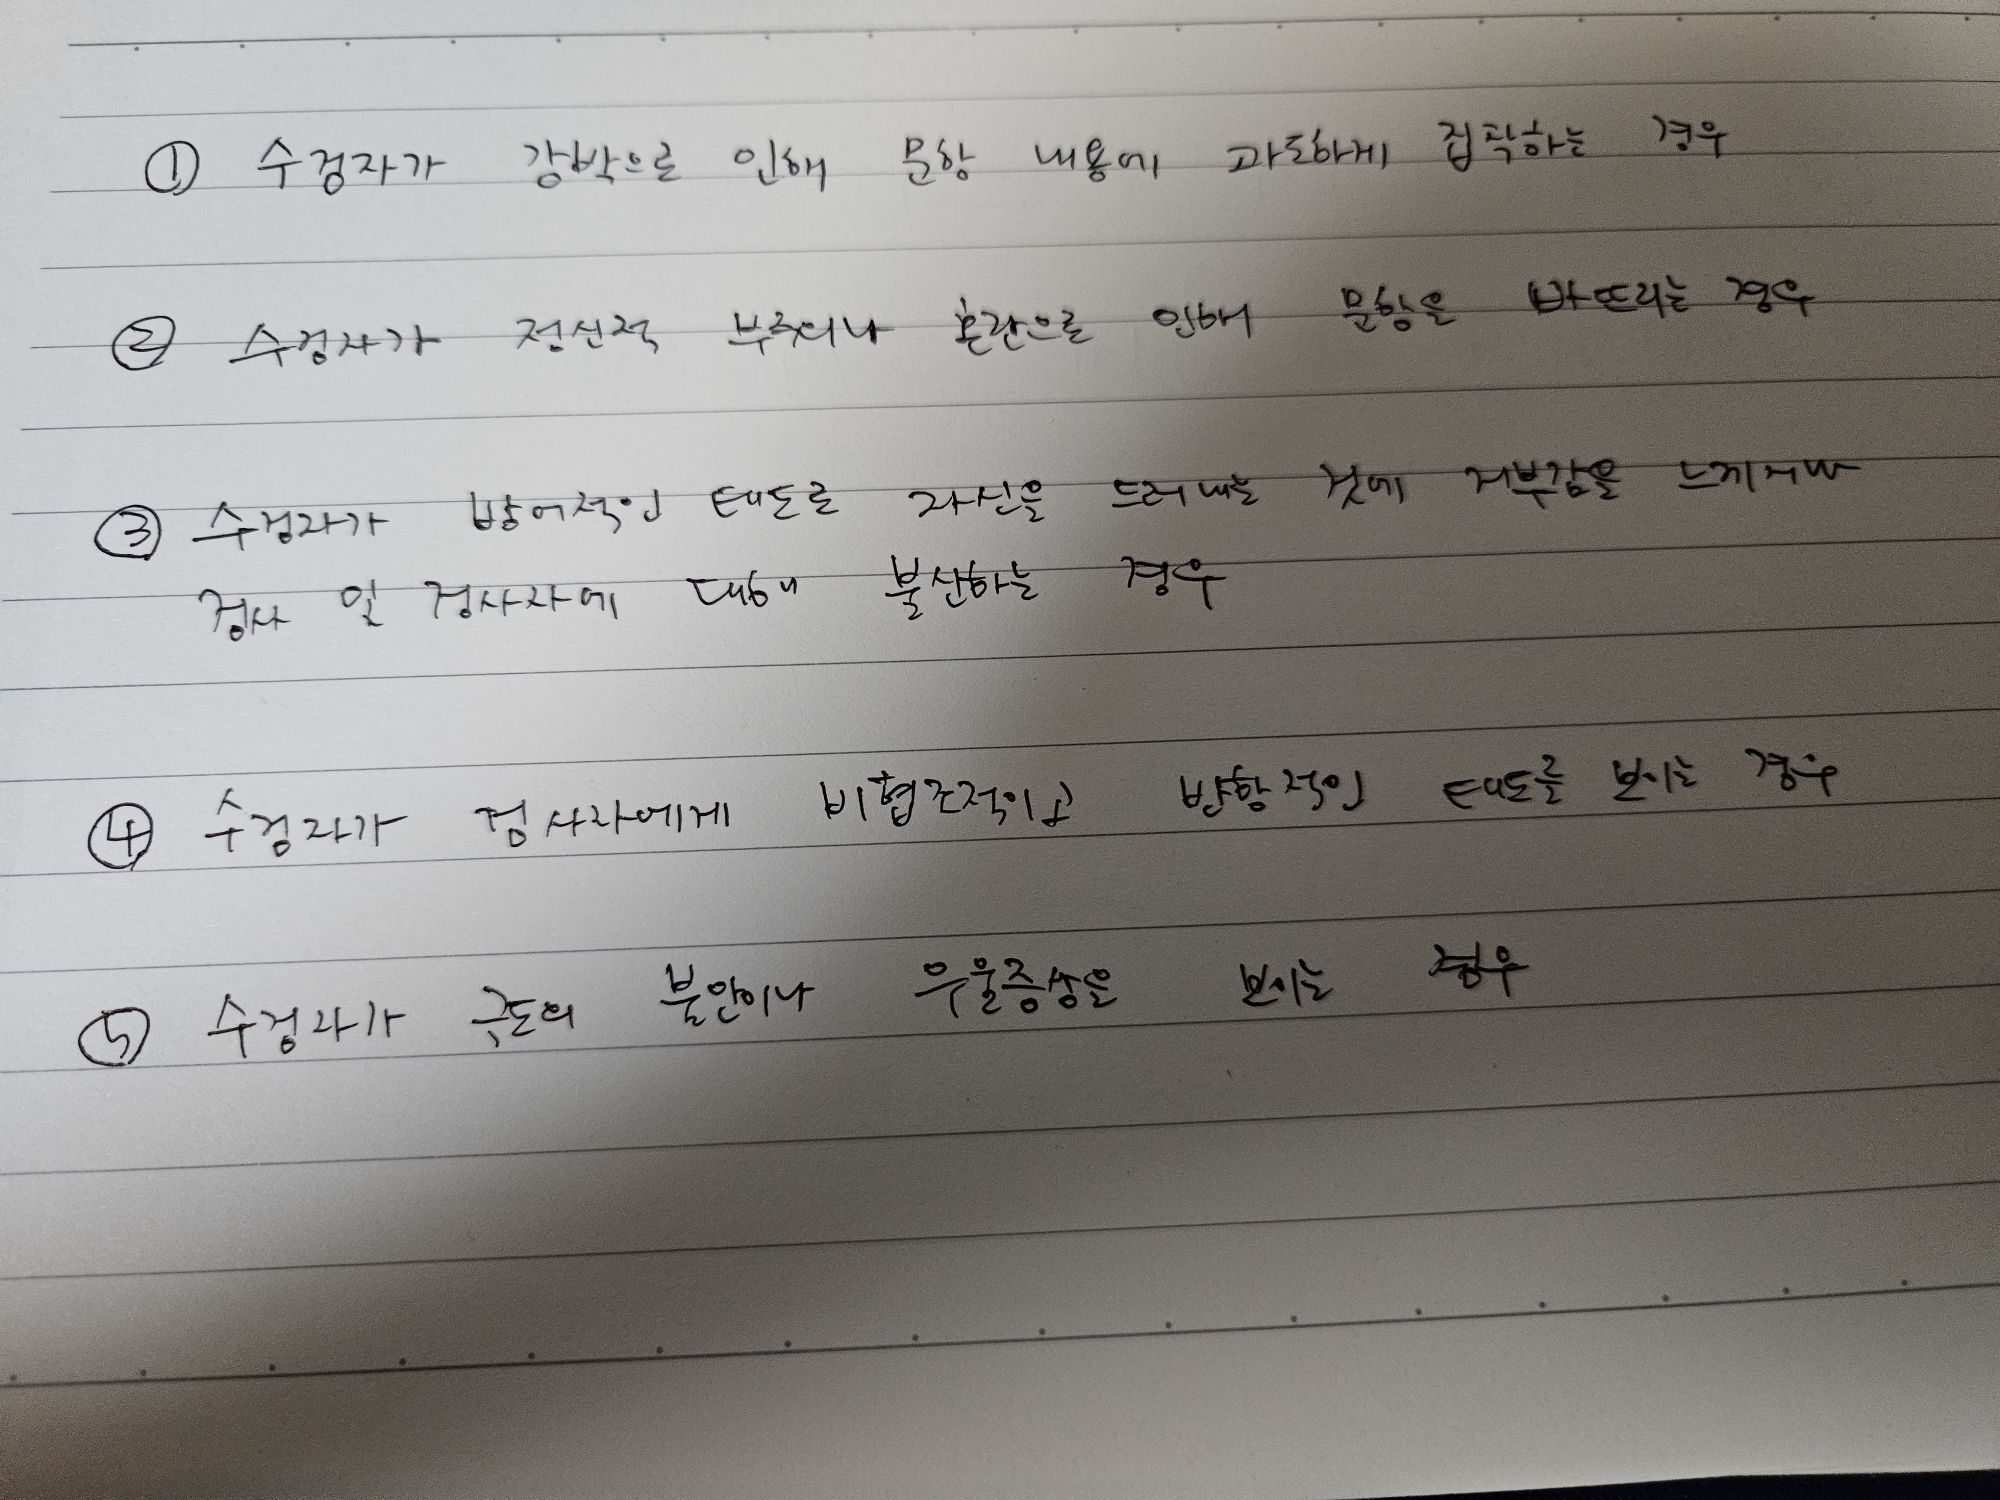 ① 수검자가 강박으로 인해 문항 내용에 과도하게 집착하는 경우
② 수검자가 정신적 부주의나 혼란으로 인해 문항을 빠뜨리는 경우
③ 수검자가 방어적인 태도로 자신을 드러내는 것에 거부감을 느끼거나
검사 및 검사자에 대해 불신하는 경우
④ 수검자가 검사자에게 비협조적이고 반항적인 태도를 보이는 경우
⑤ 수검자가 극도의 불안이나 우울증상을 보이는 경우